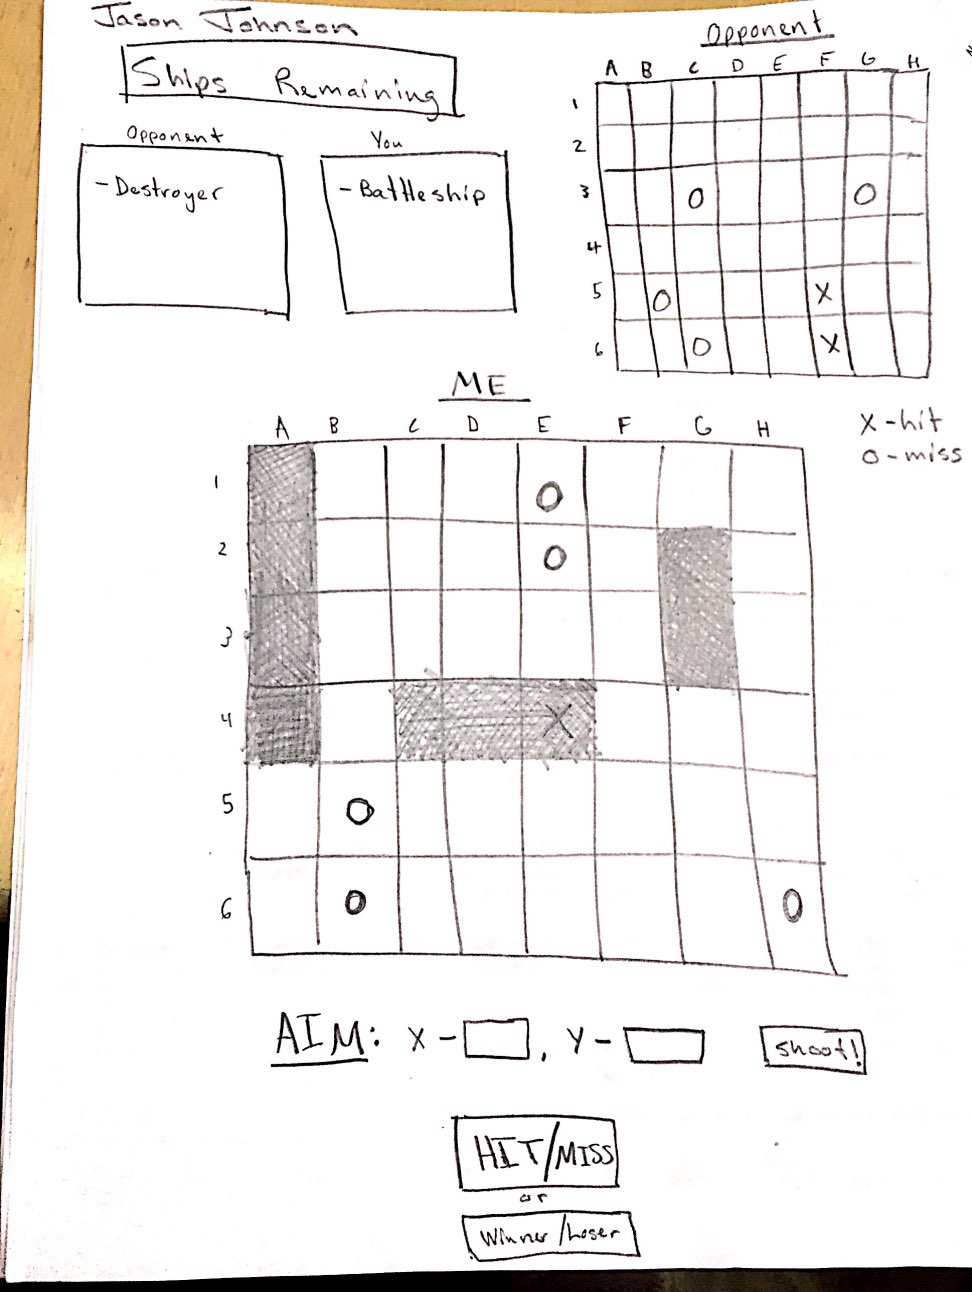 Jason Johnson
Ships Remaining
Opponent
- Destroyer
You
- Battleship
Opponent
A B C D E F G H
1
2
3 O O
4
5 O X
6 O X
X - hit
O - miss
ME
A B C D E F G H
1 O
2 O
3
4 X
5 O
6 O O
AIM: X - , Y - Shoot!
HIT/MISS
or
Winner/Loser